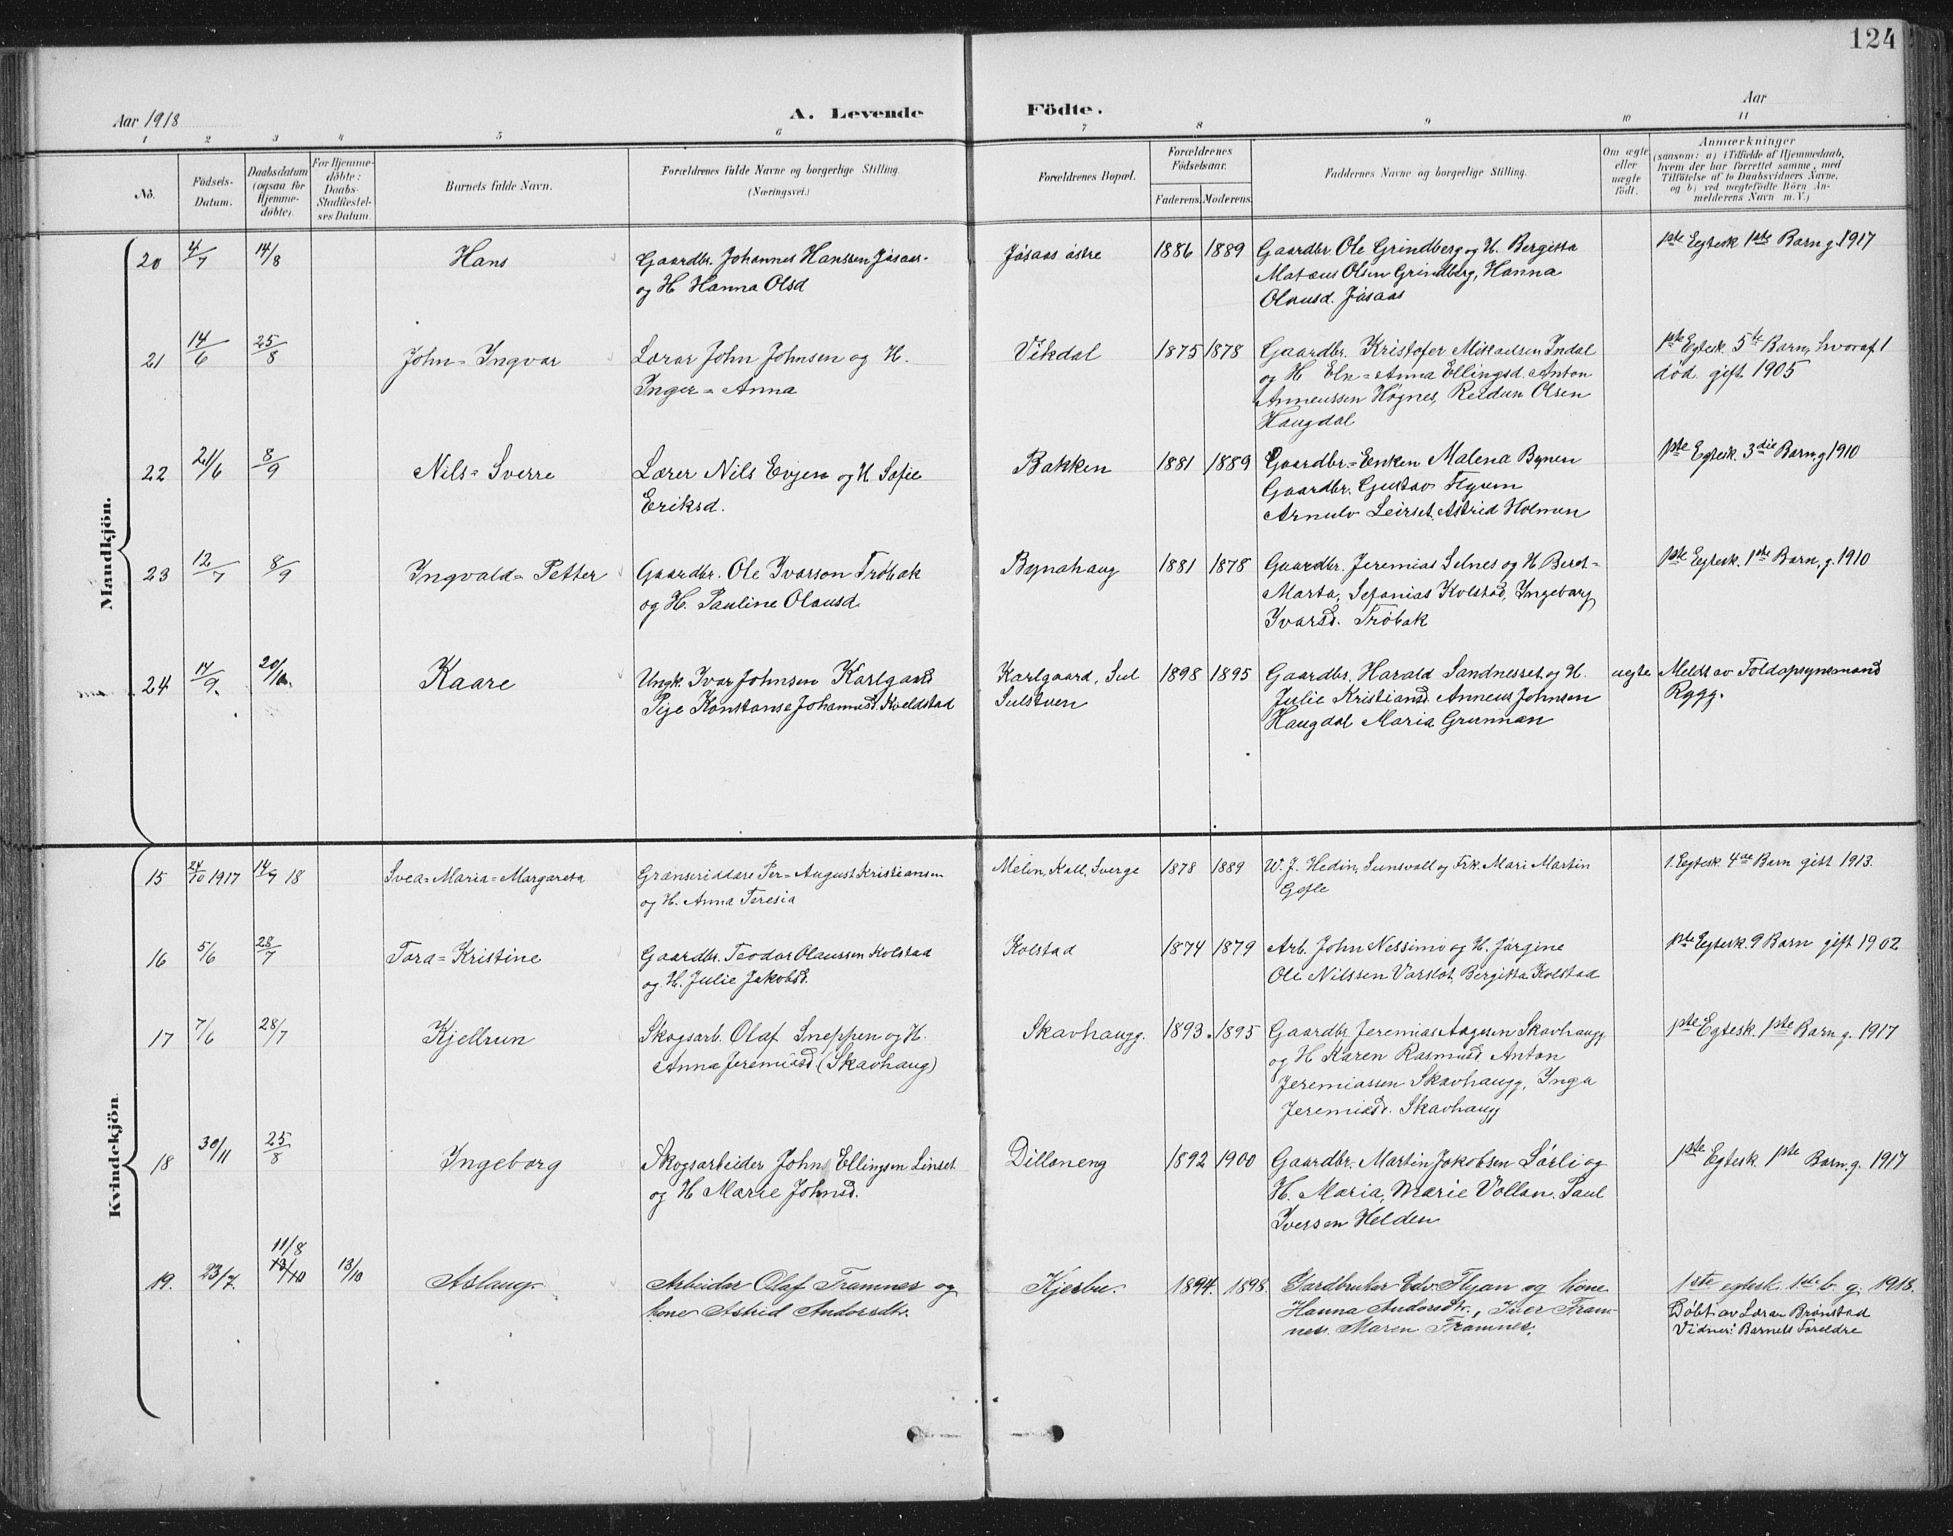 124
Aar 1918
A. Levende Födte.
Aar
1 2 3 4 5 6 7 8 9 10 11
No.
Födsels-Datum.
Daabsdatum (ogsaa for Hjemmedöbte).
For Hjemmedöbte: Daabs-Stadfæstelses Datum.
Barnets fulde Navn.
Forældrenes fulde Navne og borgerlige Stilling. (Næringsvei.)
Forældrenes Bopæl.
Forældrenes Födselsaar.
Faderens. Moderens.
Faddernes Navne og borgerlige Stilling.
Om ægte eller uægte født.
Anmærkninger
(saasom: a) i Tilfælde af Hjemmedaab, hvem der har forrettet samme, med Tilföielse af to Daabsvidners Navne, og b) ved uægtefödte Börn Anmelderens Navn m. V.)
Mandkjön.
20 4/7 14/8 Hans
Gaardbr. Johannes Hanssen Jøsaas
og H. Hanna Olsd
Jøsaas østre 1886 1889
Gaardbr Ole Grindberg og H. Bergitta
Mataus Olsen Grindberg, Hanna
Olausd. Jøsaas
1ste Egtesk 1ste Barn g. 1917
21 14/6 25/8 John=Ingvar
Lærer John Johnsen og H.
Inger=Anna
Vikdal 1875 1878
Gaardbr. Kristofer Mikaelsen Indal
og H Eln=Anna Ellingsd. Anton
Anneussen Høgnes, Reidun Olsen
Haugdal
1ste Egtesk. 5te Barn, hvoraf 1
død. gift 1905
22 21/6 8/9 Nils=Sverre
Lærer Nils Evjen og H. Sofie
Eriksd.
Bakken 1881 1889
Gaardbr=Enken Malena Bynen
Gaardbr. Gustav Flyum
Arnulv Leirset, Astrid Holmen
1ste Egtesk. 3die Barn g 1910
23 12/7 8/9 Ingvald=Petter
Gaardbr. Ole Ivarson Trøbak
og H. Pauline Olausd
Bynahaug 1881 1878
Gaardbr. Jeremias Selnes og H Beret=
Marta, Sefanias Kolstad, Ingeborg
Ivarsd. Trøbak
1ste Egtesk. 1ste Barn, g. 1910
24 14/9 20/10 Kaare
Ungk. Ivar Johnsen Karlgaard
Pige Konstanse Johannesd. Kveldstad
Karlgaard, Sul
Sulstuen
1898 1895
Gaardbr. Harald Sandnesset og H.
Julie Kristiansd Anneus Johnsen
Haugdal Maria Grunnan
uegte
Meldt av Toldopsynsmand
Rygg.
Kvindekjön
15 24/10 1917 14/9 18 Svea=Maria=Margareta
Grænseriddare Per=August Kristiansen
og H. Anna Teresia
Melin, Kall, Sverge 1878 1889
W. J. Hedin, Sunsvall og Frk. Mari Martin
Gefle
1. Egtesk. 4de Barn gift 1913.
16 5/6 28/7 Tora=Kristine
Gaardbr. Teodor Olaussen Kolstad
og H. Julie Jakobsd.
Kolstad 1874 1879
Arb. John Nessimo og H. Jørgine
Ole Nilssen Varslot, Bergitta Kolstad
1ste Egtesk. 9 Barn gift 1902
17 7/6 28/7 Kjellrun
Skogsarb. Olaf Sneppen og H.
Anna Jeremiasd. (Skavhaug)
Skavhaugg. 1893. 1895
Gaardbr Jeremias Aagesen Skavhaugg
og H Karen Rasmusd. Anton
Jeremiassen Skavhaugg, Inga
Jeremiasd. Skavhaugg
1ste Egtesk. 1ste Barn g. 1917
18 30/11 25/8 Ingeborg
Skogsarbeider John Ellingsen Linset
og H Marie Johnsd.
Dillaneng 1892 1900
Gaardbr. Martin Jakobsen Sørli og
H. Maria, Marie Vollan. Paul
Iversen Helden
1ste Egtesk. 1ste Barn. g. 1917
19. 23/7. 11/8 13/10 13/10 Aslaug.
Arbeider Olaf Tramnes og
kone Astrid Andersdtr.
Kjesbu. 1894. 1898.
Gardbruker Edv. Flyan og kone
Hanna Andersdtr., Iver Tram-
nes. Maren Tramnes.
1ste egtesk. 1ste b. g. 1918.
Døbt av Lærer Brønstad
Vidner: Barnets Foreldre